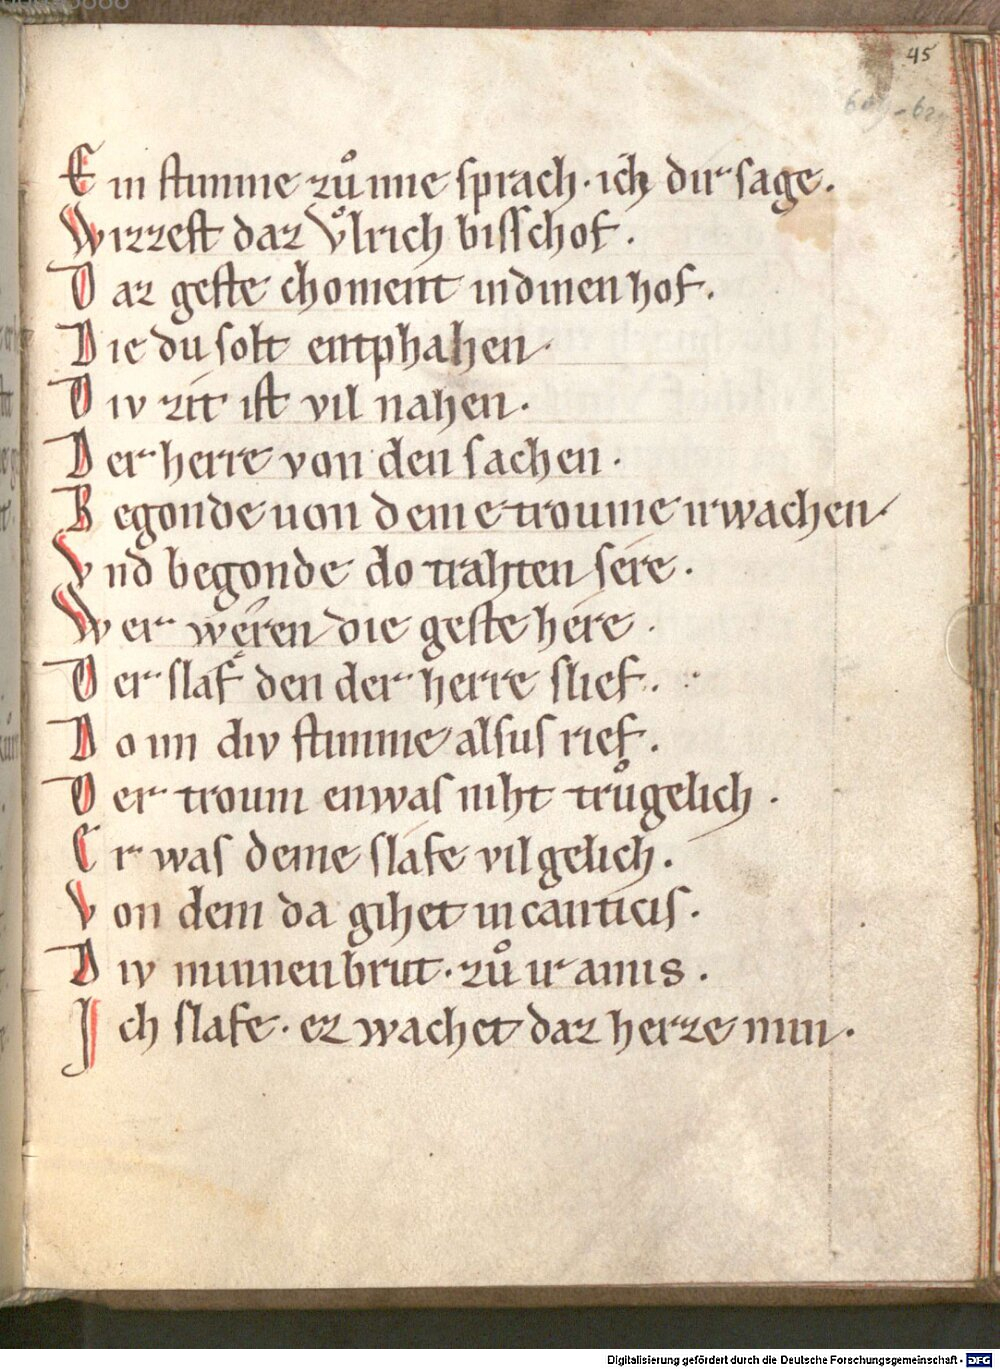 45
609-624
Ein stimme zuͦ ime sprach· ich dir sage.
Wizzest daz Vͦlrich bisschof.
Daz geste choment in dinen hof.
Die du solt entphahen·
Div zit ist vil nahen.
Der herre von den sachen.
Begonde uon deme troume irwachen·
Vnd begonde do trahten sere.
Wer weren die geste here.
Der slaf den der herre slief.
Do im div stimme alsus rief.
Der troum enwas niht truͦgelich.
Er was deme slafe vil gelich.
Von dem da gihet in canticis.
Div minnen brut· zuͦ ir amis.
Ich slafe· ez wachet daz herze min.
Digitalisierung gefördert durch die Deutsche Forschungsgemeinschaft - DFG